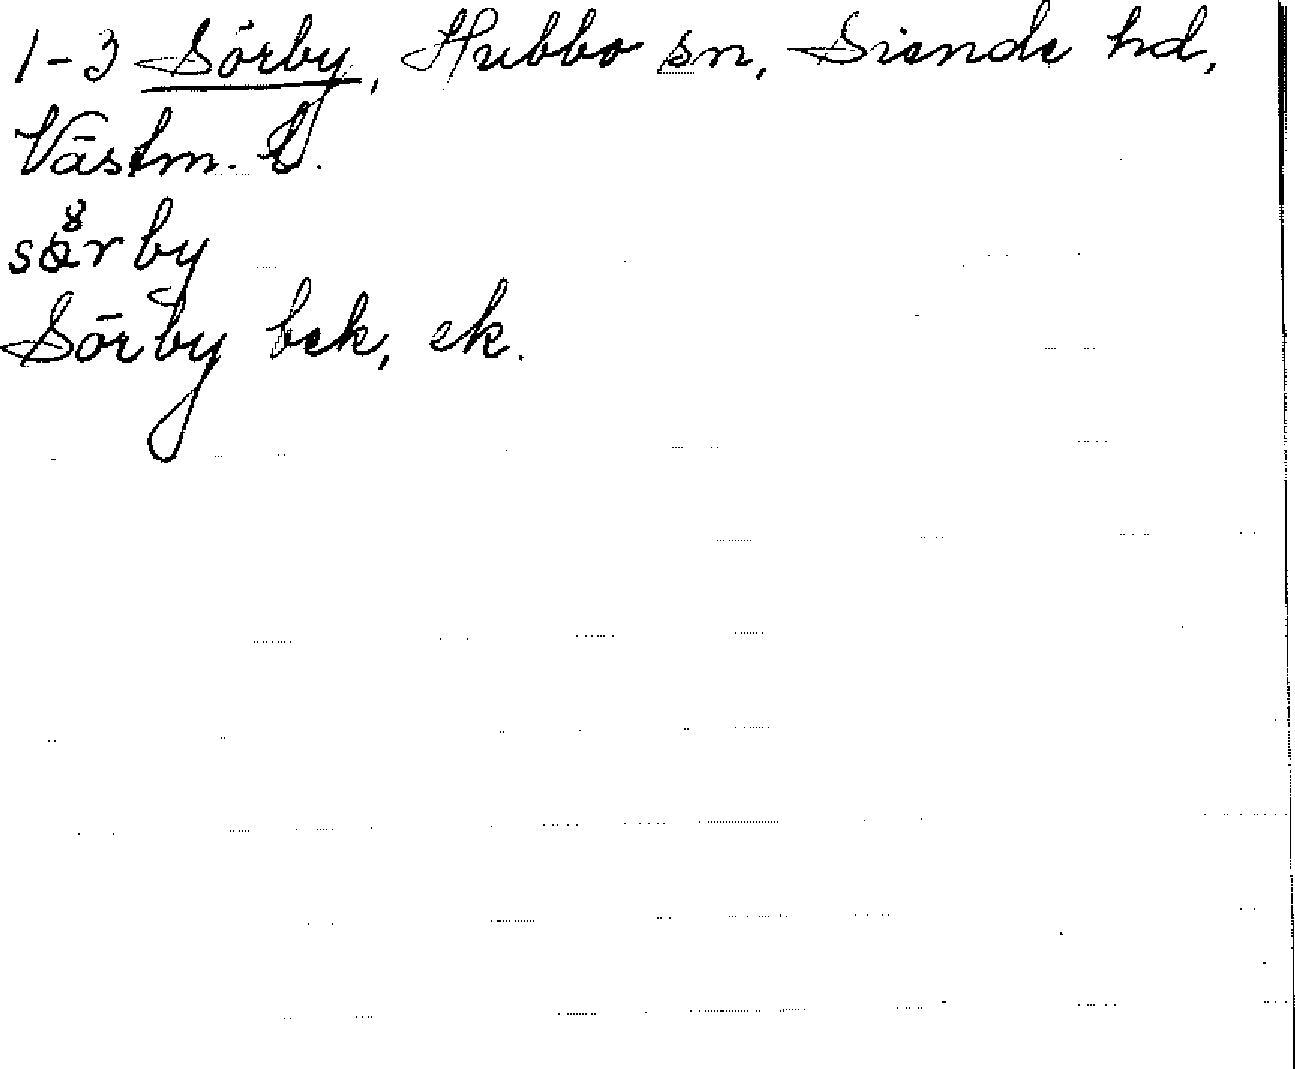 1-3 Sörby, Hubbo sn, Siende hd,
Västm. l.
by
Sörby bek, ek.